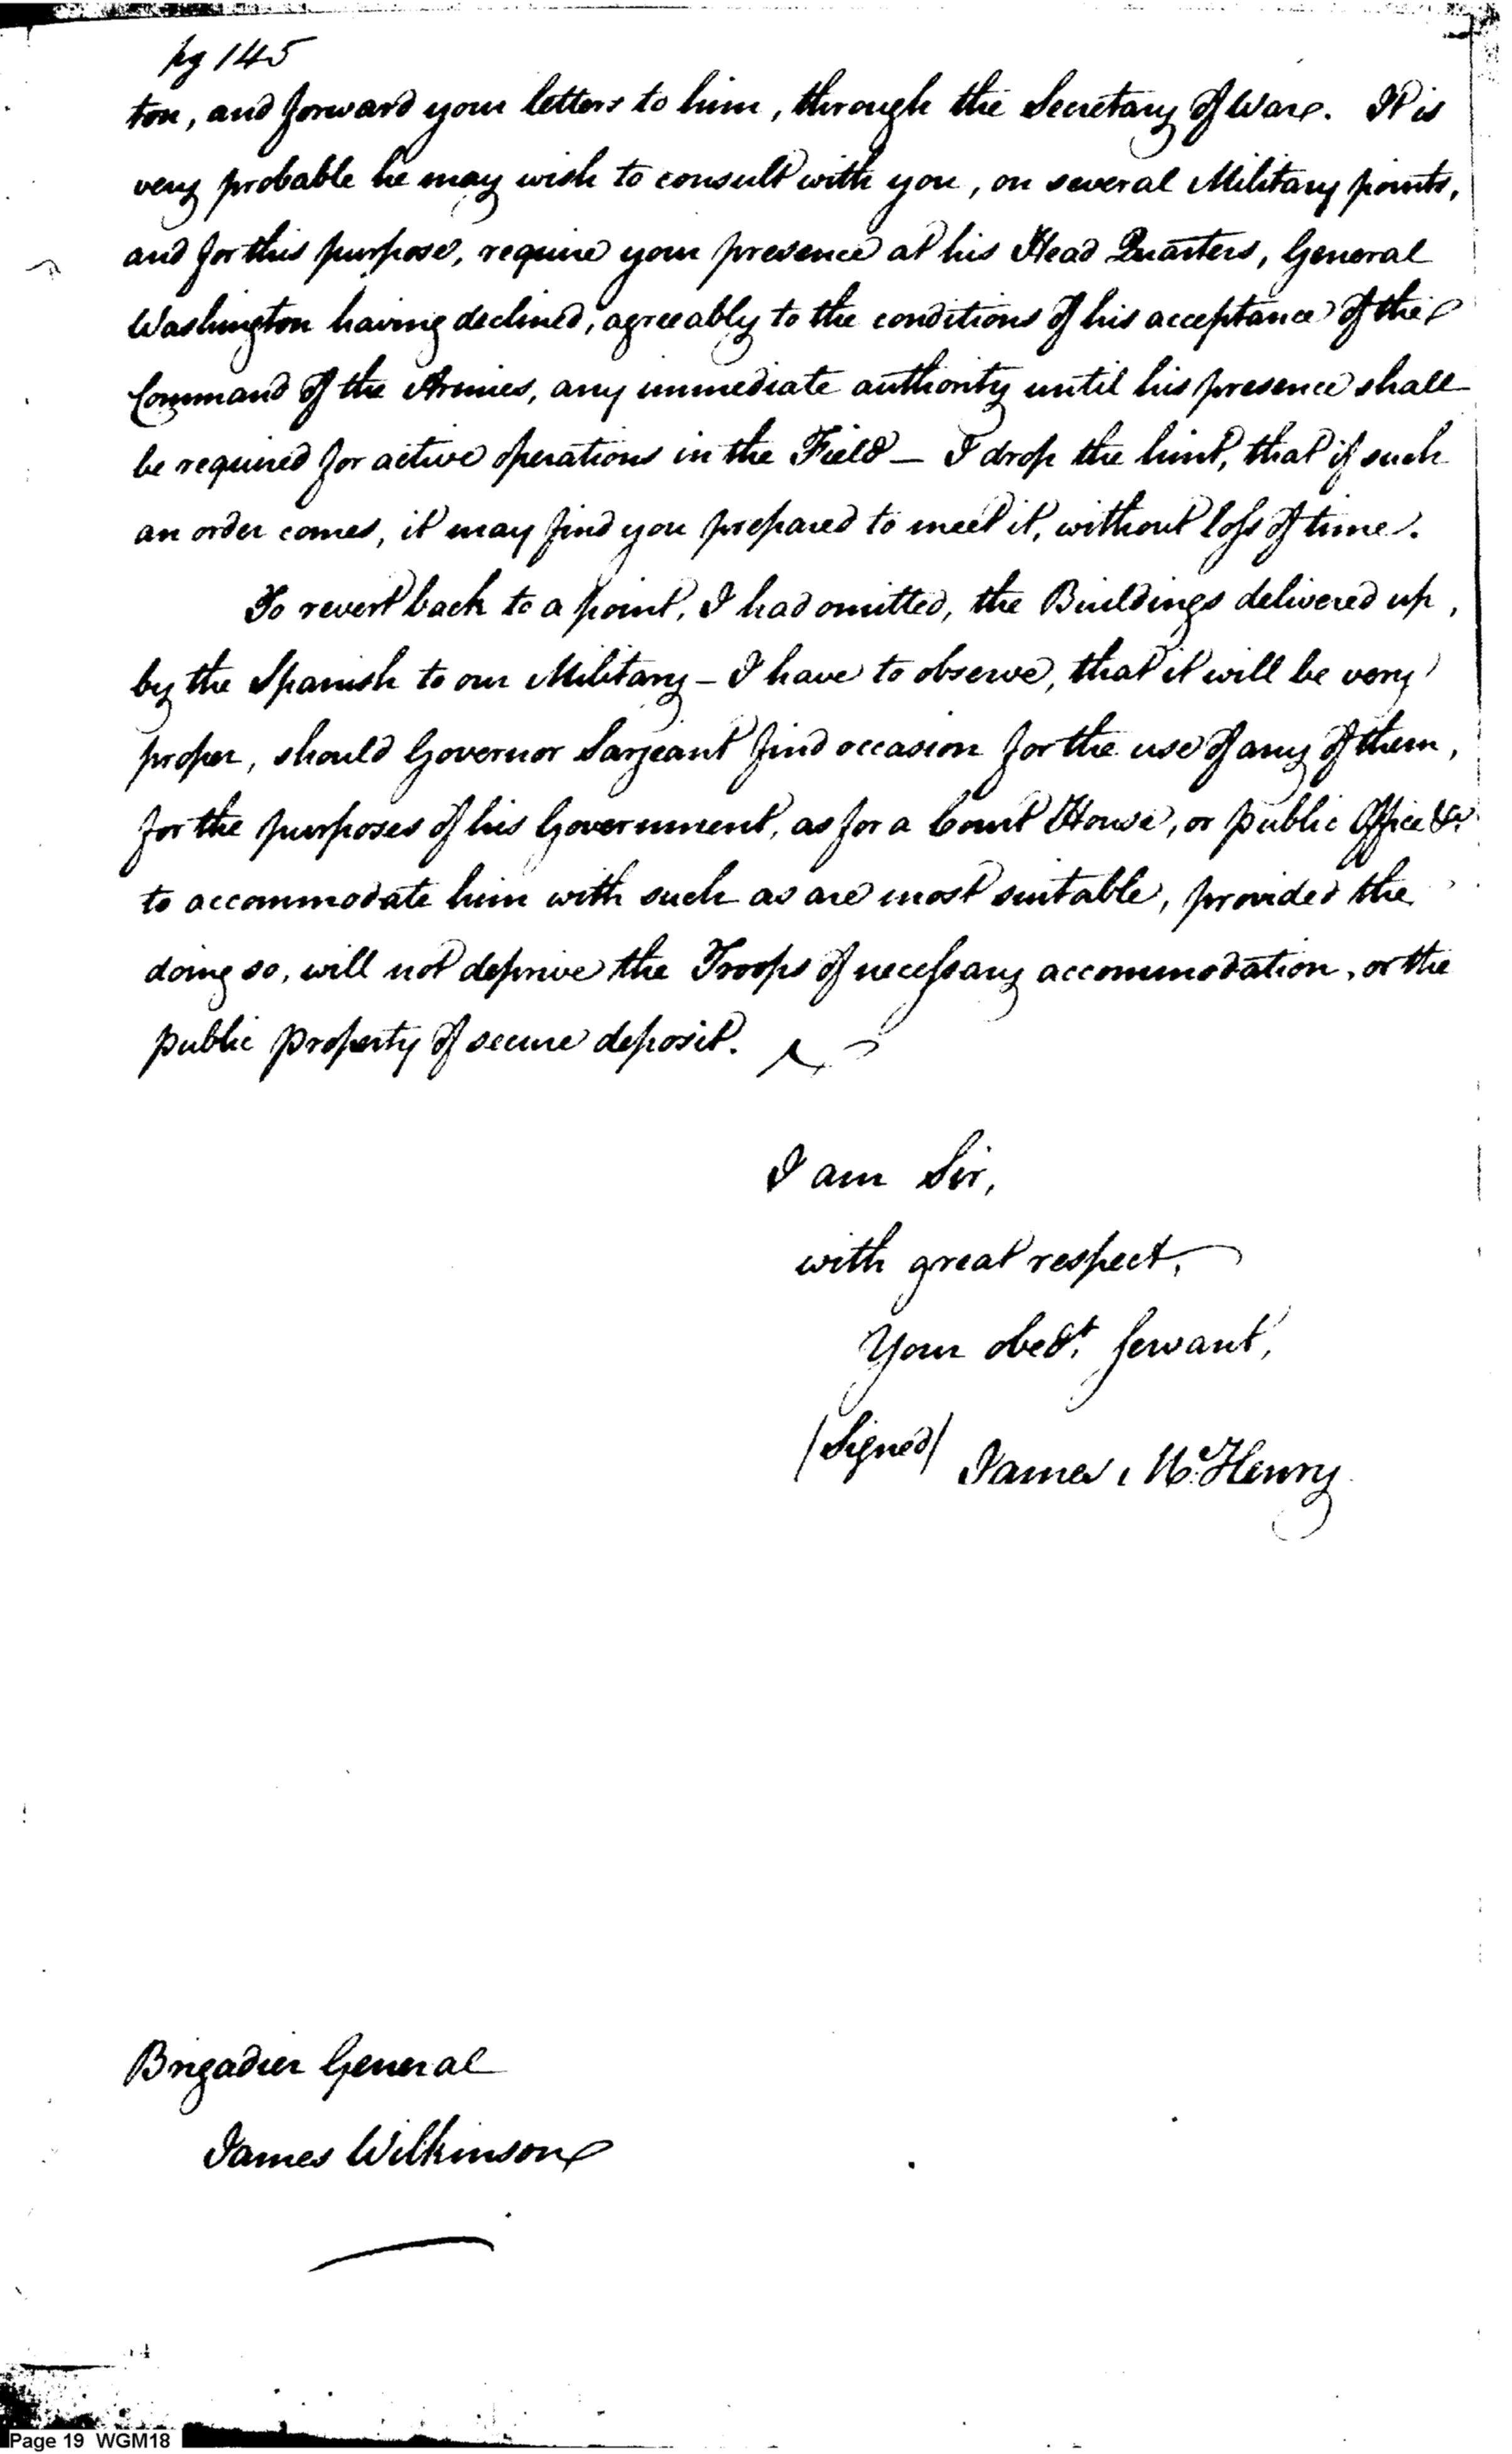 pg 145
ton, and forward your letters to him, through the Secretary of War. It is
very probable he may wish to consult with you, on several Military points,
and for this purpose, require your presence at his Head Quarters, General
Washington having declined, agreeably to the conditions of his acceptance of the
Command of the Armies, any immediate authority until his presence shall
be required for active operations in the Field — I drop the hint, that if such
an order comes, it may find you prepared to meet it, without loss of time.
To revert back to a point, I had omitted, the Buildings delivered up,
by the Spanish to our Military — I have to observe, that it will be very
proper, should Governor Sargeant find occasion for the use of any of them,
for the purposes of his Government, as for a Court House, or public Office &c.
to accommodate him with such as are most suitable, provided the
doing so, will not deprive the Troops of necessary accommodation, or the
public property of secure deposit.
I am Sir,
with great respect,
Your obedt. servant,
(Signed) James McHenry
Brigadier General
James Wilkinson
Page 19 WGM18